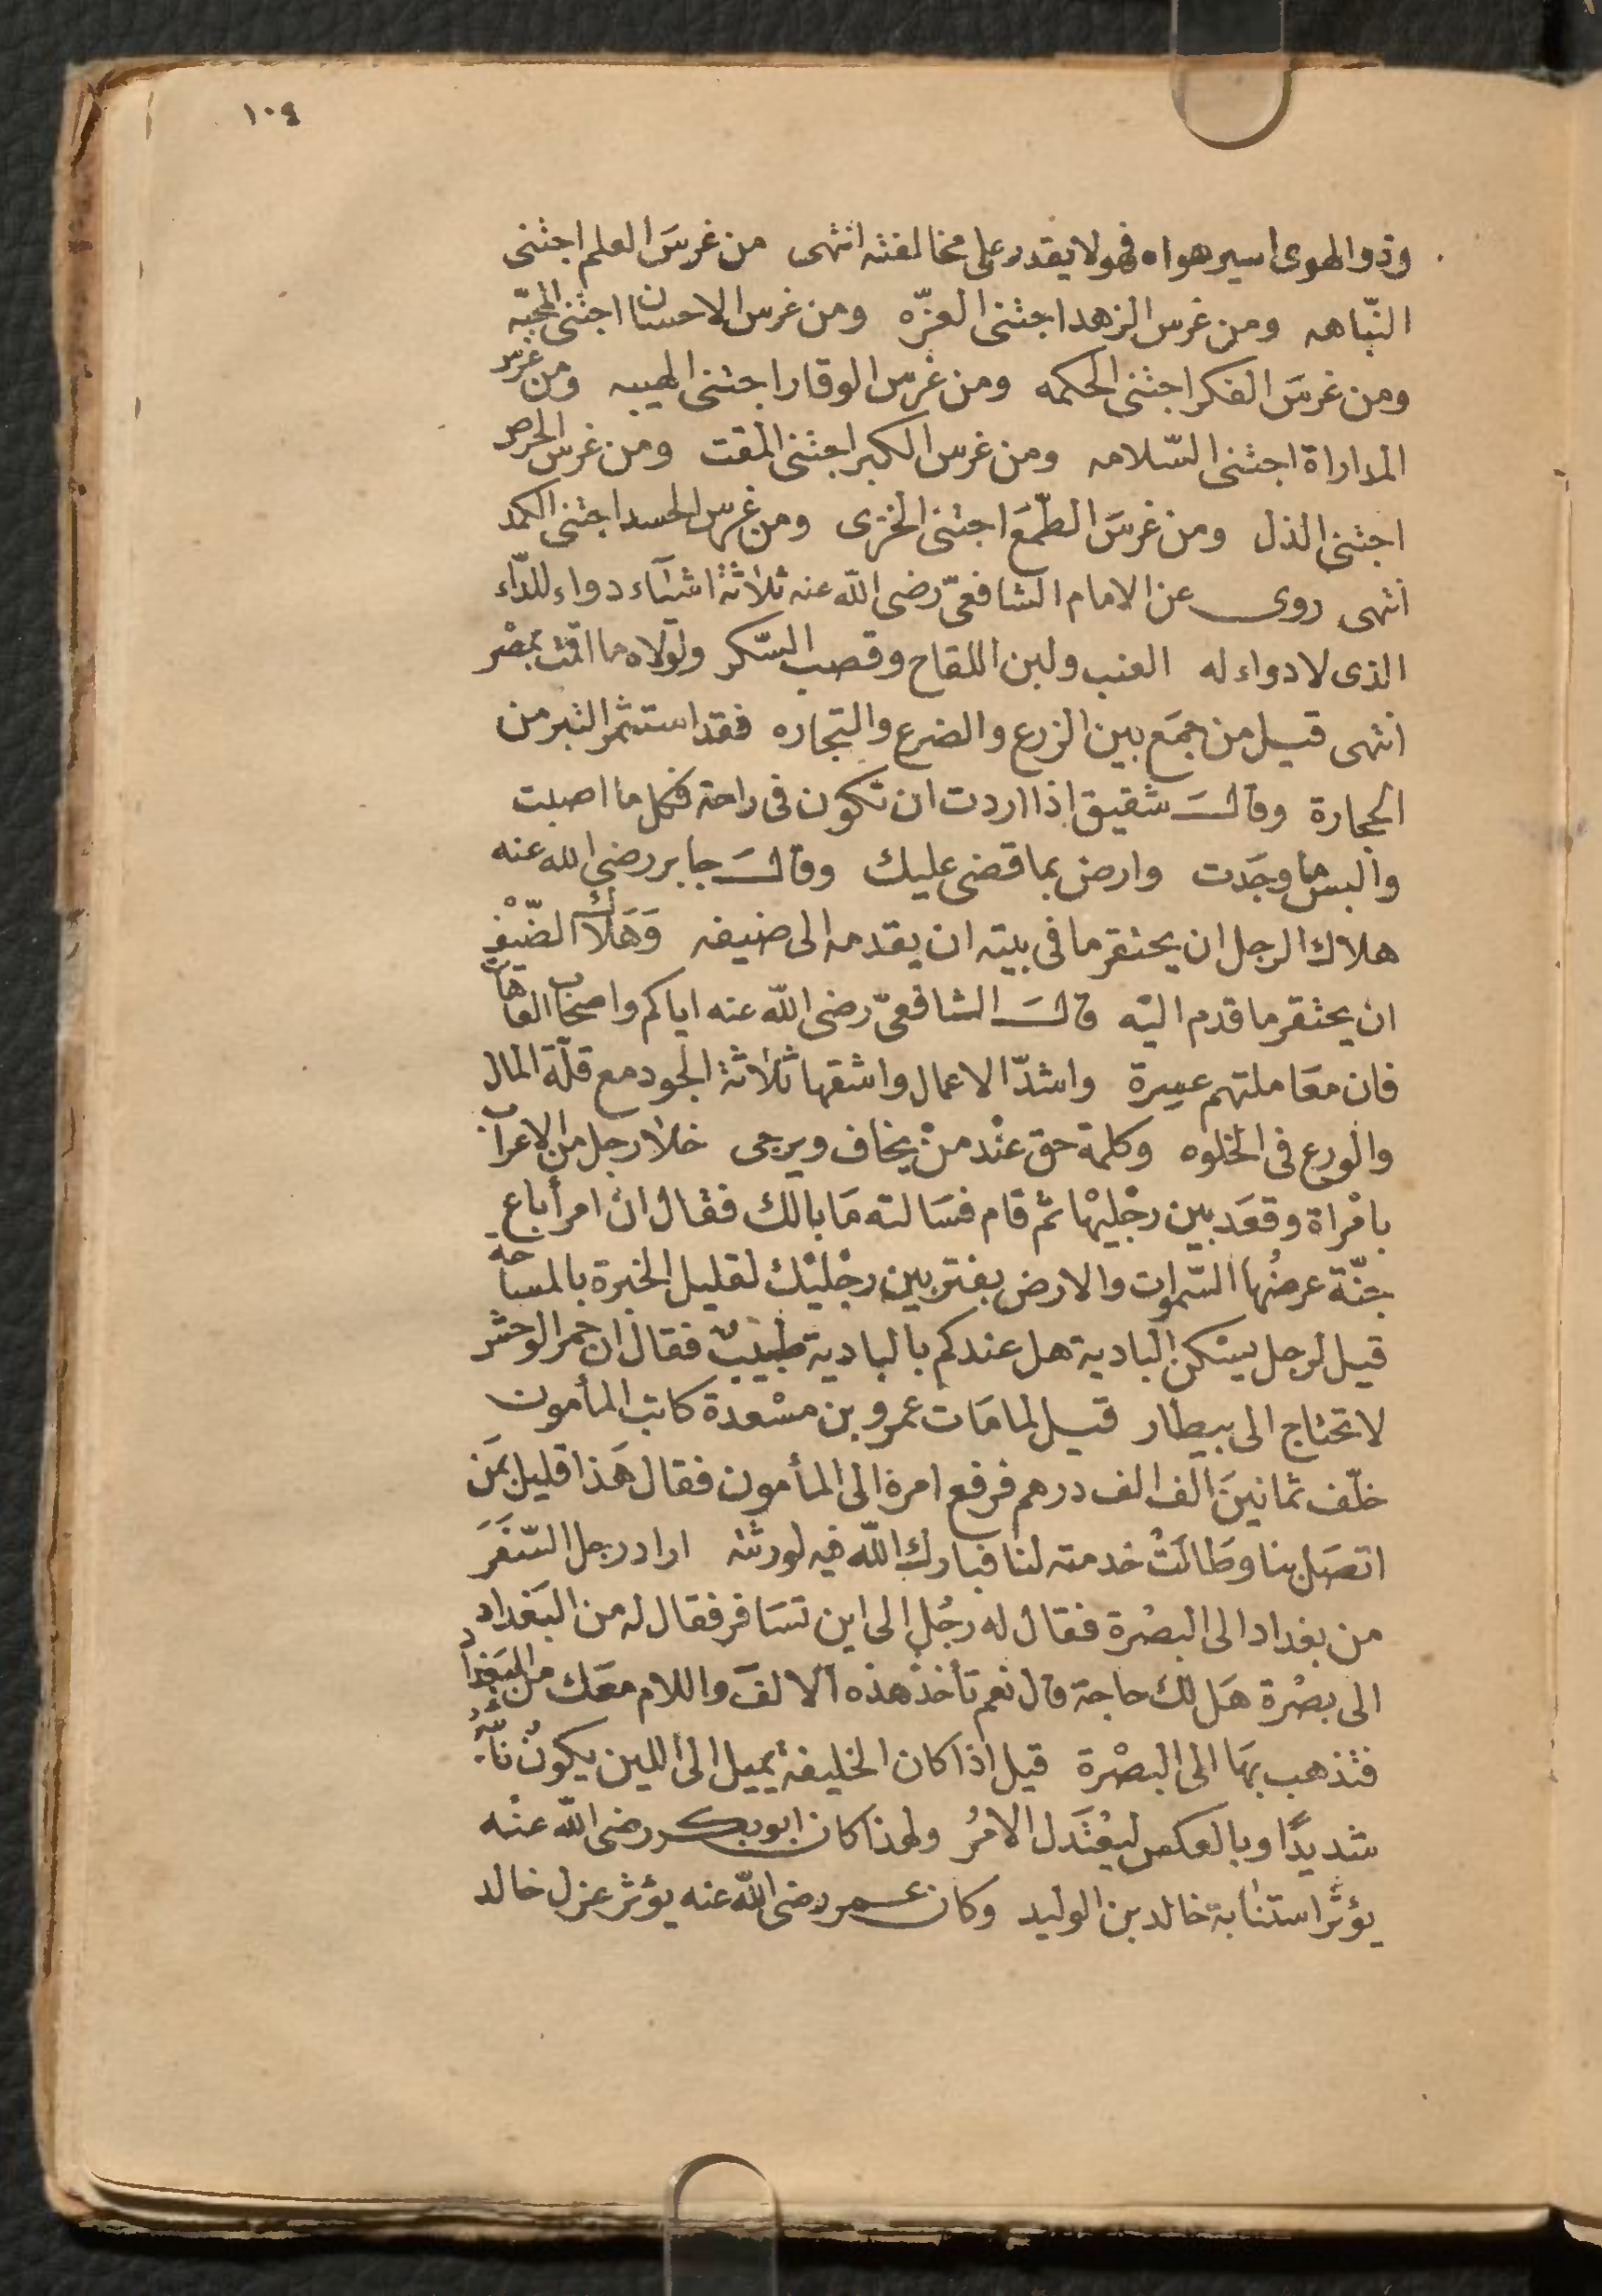 ١٠٤
وذو الهوى اسير هواه فهو لا يقدر على مخالفته انتهى من غرسَ العلم اجتنى
النّباهه ومن غرس الزهد اجتنى العزّه ومن غرس الاحسان اجتنى المحبّه
ومن غرسَ الفكر اجتنى الحكمه ومن غرس الوقار اجتنى الهيبه ومن غرس
المداراة اجتنى السّلامه ومن غرس الكبر اجتنى المقت ومن غرس الحرص
اجتنى الذل ومن غرسَ الطّمَعَ اجتنى الخزى ومن غرس الحسد اجتنى الكمد
انتهى روى عن الامام الشافعىّ رضى الله عنه ثلاثة اشيآء دواء للدّاء
الذى لا دواء له العنب ولبن اللقاح وقصب السّكر ولولاه ما اقمت بمصْر
انتهى قيل من جمَع بين الزرع والضرع والتجاره فقد استثمر التبر من
الحجارة وقالَ شقيق اذا اردت ان تكون فى راحة فكل ما اصبت
والبس ما وجَدت وارض بما قضى عليك وقالَ جابر رضى الله عنه
هلاك الرجل ان يحتقر ما فى بيته ان يقدمه الى ضيفه وَهَلَاك الضّيْف
ان يحتقر ما قدم اليه قالَ الشافعىّ رضى الله عنه اياكم واصحاب العاهات
فان معَاملتهم عسِرة واشدّ الاعمال واشقها ثلاثة الجود مع قلّة المال
والورع فى الخلوه وكلمة حق عنْد منْ يخاف ويرجى خلا رجل من الاعراب
بامْراة وقعَد بين رجْليهْا ثم قام فسَالته مَا بالك فقال انّ امرأ باع
جنّة عرضُها السّموات والارض بفتر بين رجْليْك لقليل الخبرة بالمساحة
قيل لرجل يسْكن البادية هل عندكم بالبادية طبيبٌ فقال ان حمر الوحش
لا تحتاج الى بيطار قيل لما مَات عمرو بن مسْعدة كاتب المأمون
خلّف ثمانينَ الف الف درهم فرفع امره الى المأمون فقال هَذا قليل بمَن
اتصَل بنا وطَالتْ خدمته لنا فبارك الله فيه لورثته اراد رجل السّفَرَ
من بغداد الى البصْرة فقال له رجُل الى اين تسَافر فقال له من البَغداد
الى بصْرة هَل لك حاجة قال نعم تأخذ هذه الالفَ واللام معَك من البَغداد
فتذهب بهَا الى البصْرة قيل اذا كان الخليفة يميل الى اللين يكونُ نائبُهُ
شديدًا وبالعكس ليعْتَدل الامْرُ ولهذا كان ابو بكر رضى الله عنْه
يؤثر استنابة خالد بن الوليد وكان عمر رضى الله عنه يؤثر عزل خالد